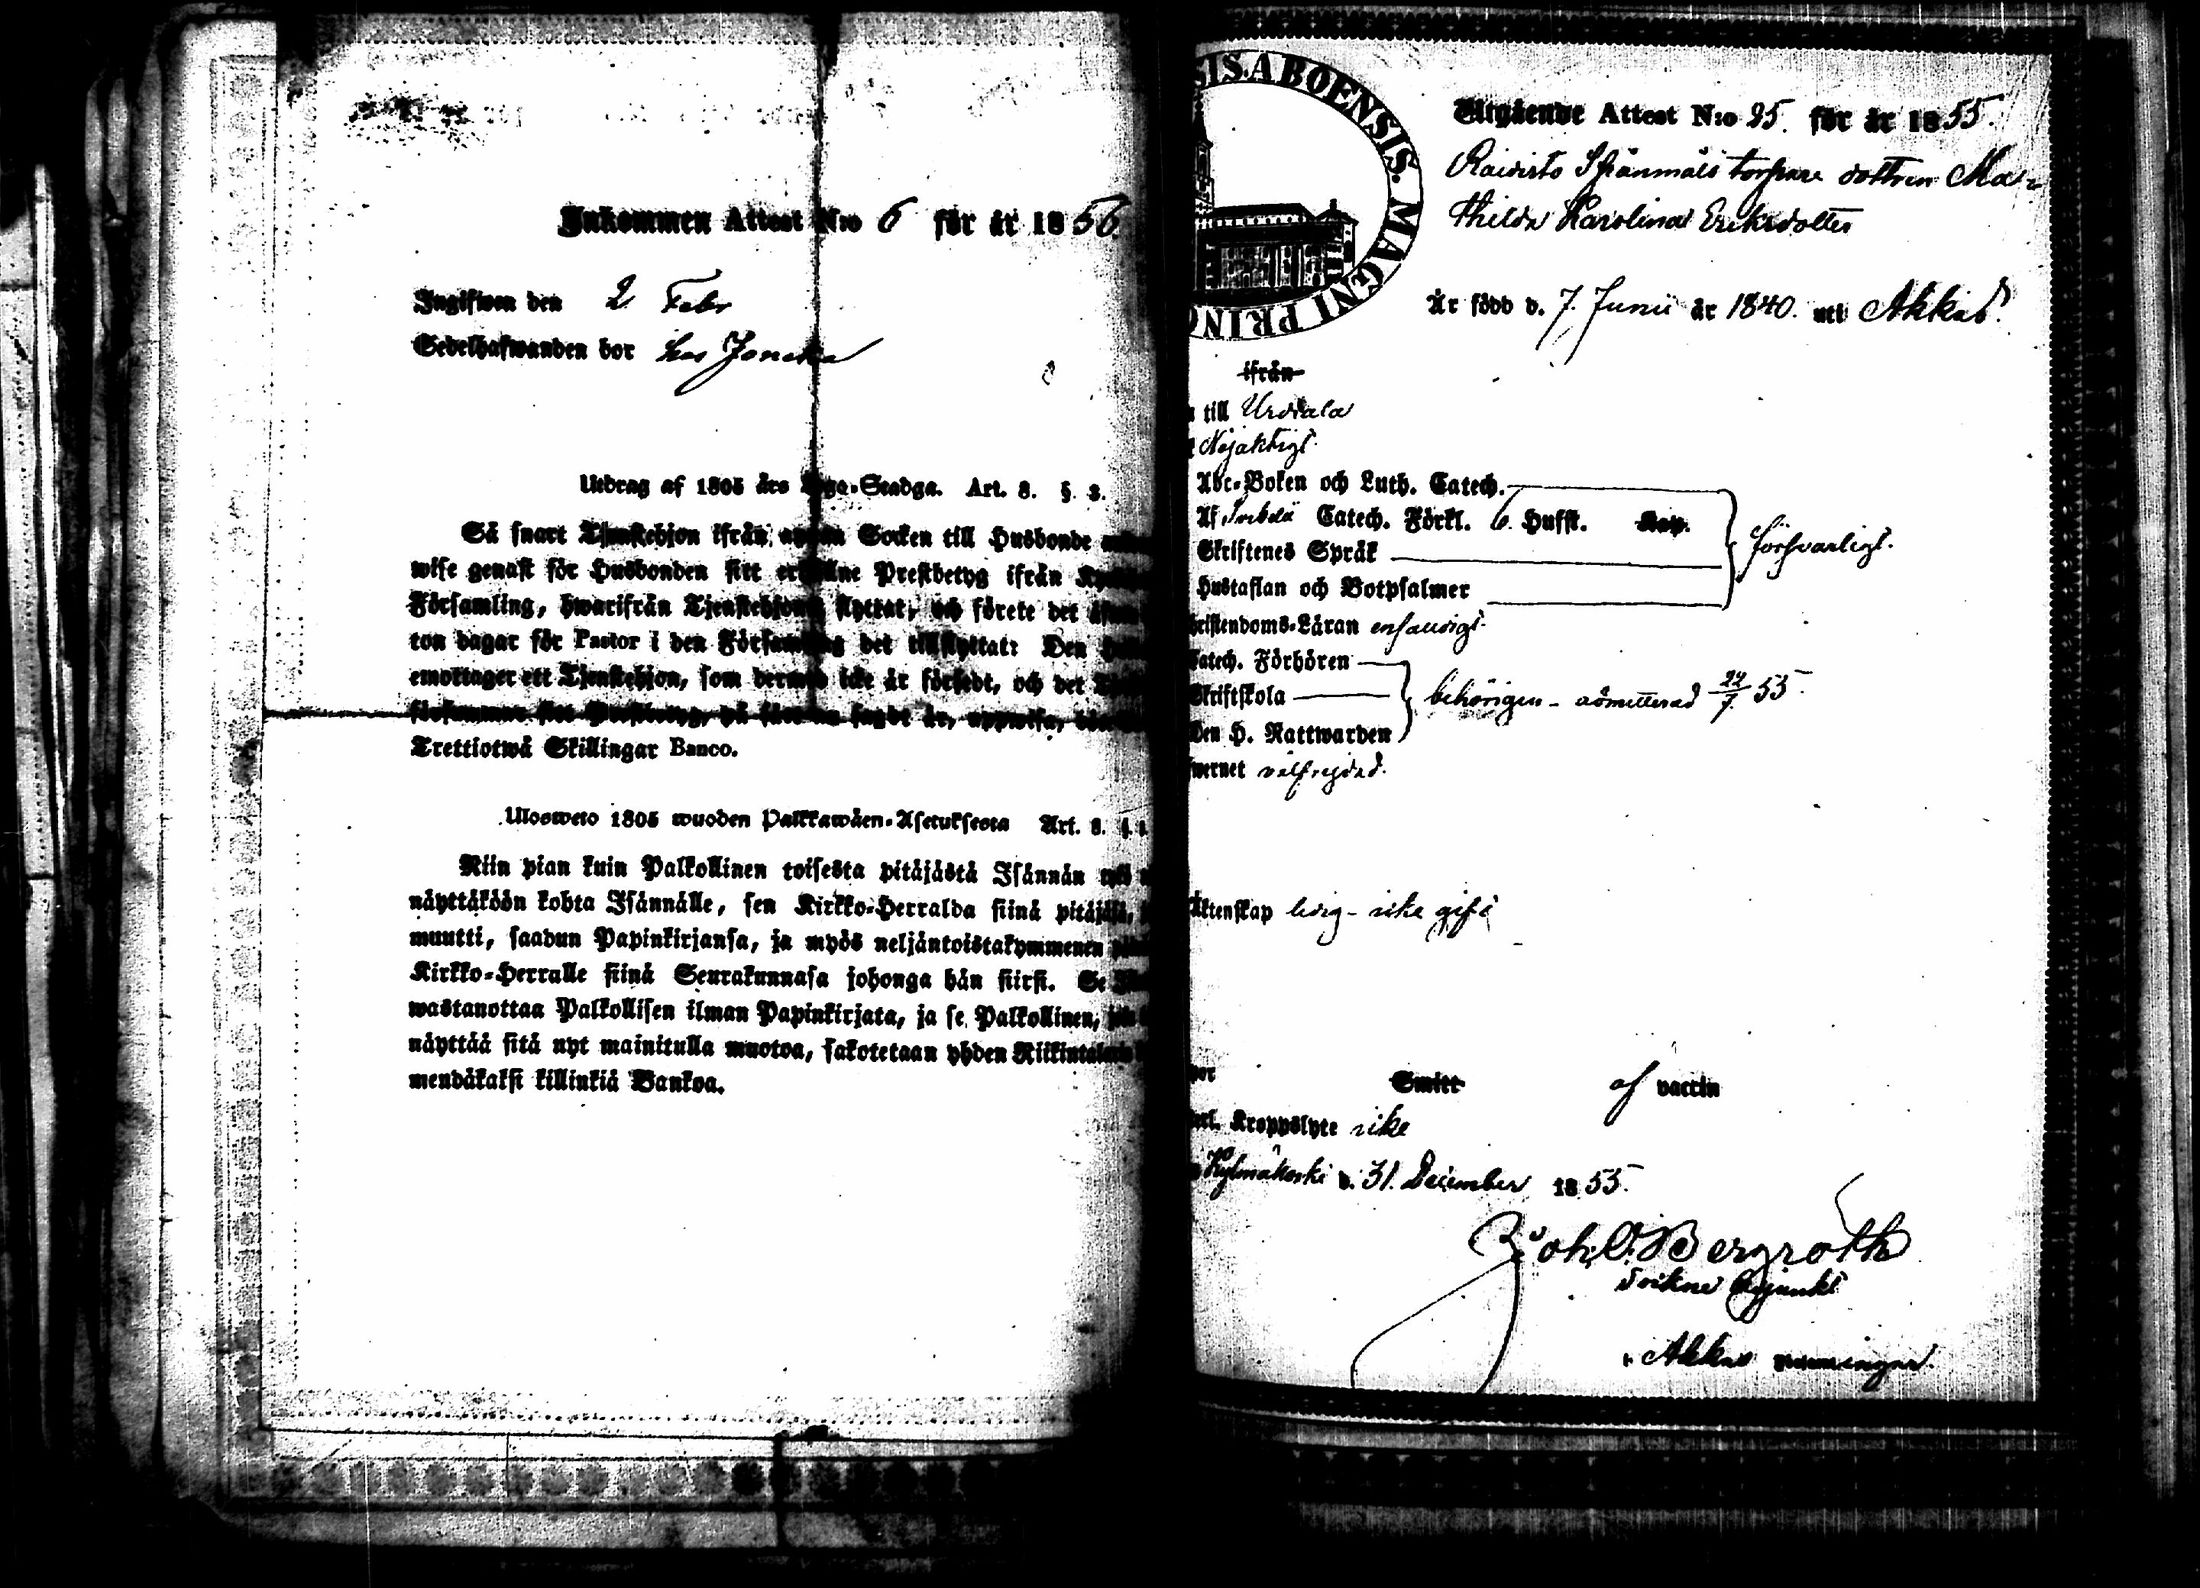 Inkommen Attest N:o 6 för år 1856.
Ingifwen den 2 Febr
Sedelhafwanden bor hos
Utdrag af 1805 års Lego-Stadga. Art. 8. §. 3.
Så snart Tjenstehjon ifrån annan Socken till Husbonde
wise genast för Husbonden sitt erhållne Prestbetyg ifrån
Församling, hwarifrån Tjenstehjonet flyttat, och förete det
ton dagar för Pastor i den Församling det tillflyttat: Den
emottager ett Tjenstehjon, som dermed icke är försedt, och det
sitt Prestbetyg, på sätt nu sagdt är, uppwisa,
Trettiotwå Skillingar Banco.
Uloswето 1805 wuoden Palkkawäen-Asetuksesta Art. 8. §.
Niin pian kuin Palkollinen toisesta pitäjästä Isännän tykö
näyttäköön kohta Isännälle, sen Kirkko-Herralda siinä pitäjäsä,
muutti, saadun Papinkirjansa, ja myös neljäntoistakymmenen
Kirkko-Herralle siinä Seurakunnasa johonga hän siirsi. Se
wastanottaa Palkollisen ilman Papinkirjata, ja se Palkollinen,
näyttää sitä nyt mainitulla muotoa, sakotetaan yhden Riikintalarin
mendäkaksi killinkiä Bankoa.
SIS ABOENSIS. MAGNI PRINC
Utgående Attest N:o 25. för år 1855.
Raivisto Spånmäls torpare dottren Ma-
thilda Karolina Eriksdotter
Är född d. 7. Junii år 1840. uti Akkas.
ifrån
till Urdiala
Nöjaktigt.
Abc-Boken och Luth. Catech.
Af Svebelii Catech. Förkl. 6. Hufst. Kap.
Skriftenes Språk
försvarligt.
Hustaflan och Botpsalmer
hristendoms-Läran enfaldigt.
atech. Förhören
Skriftskola
behörigen - admitterad 22/7. 55.
Den H. Nattwarden
wernet välfrejdad.
Äktenskap ledig - icke gift
por Smitt af vaccin
erl. Kroppslyte icke
Kylmäkoski d. 31. December 1855.
Joh. O. Bergroth
Sockne Adjunkt
i Akkas